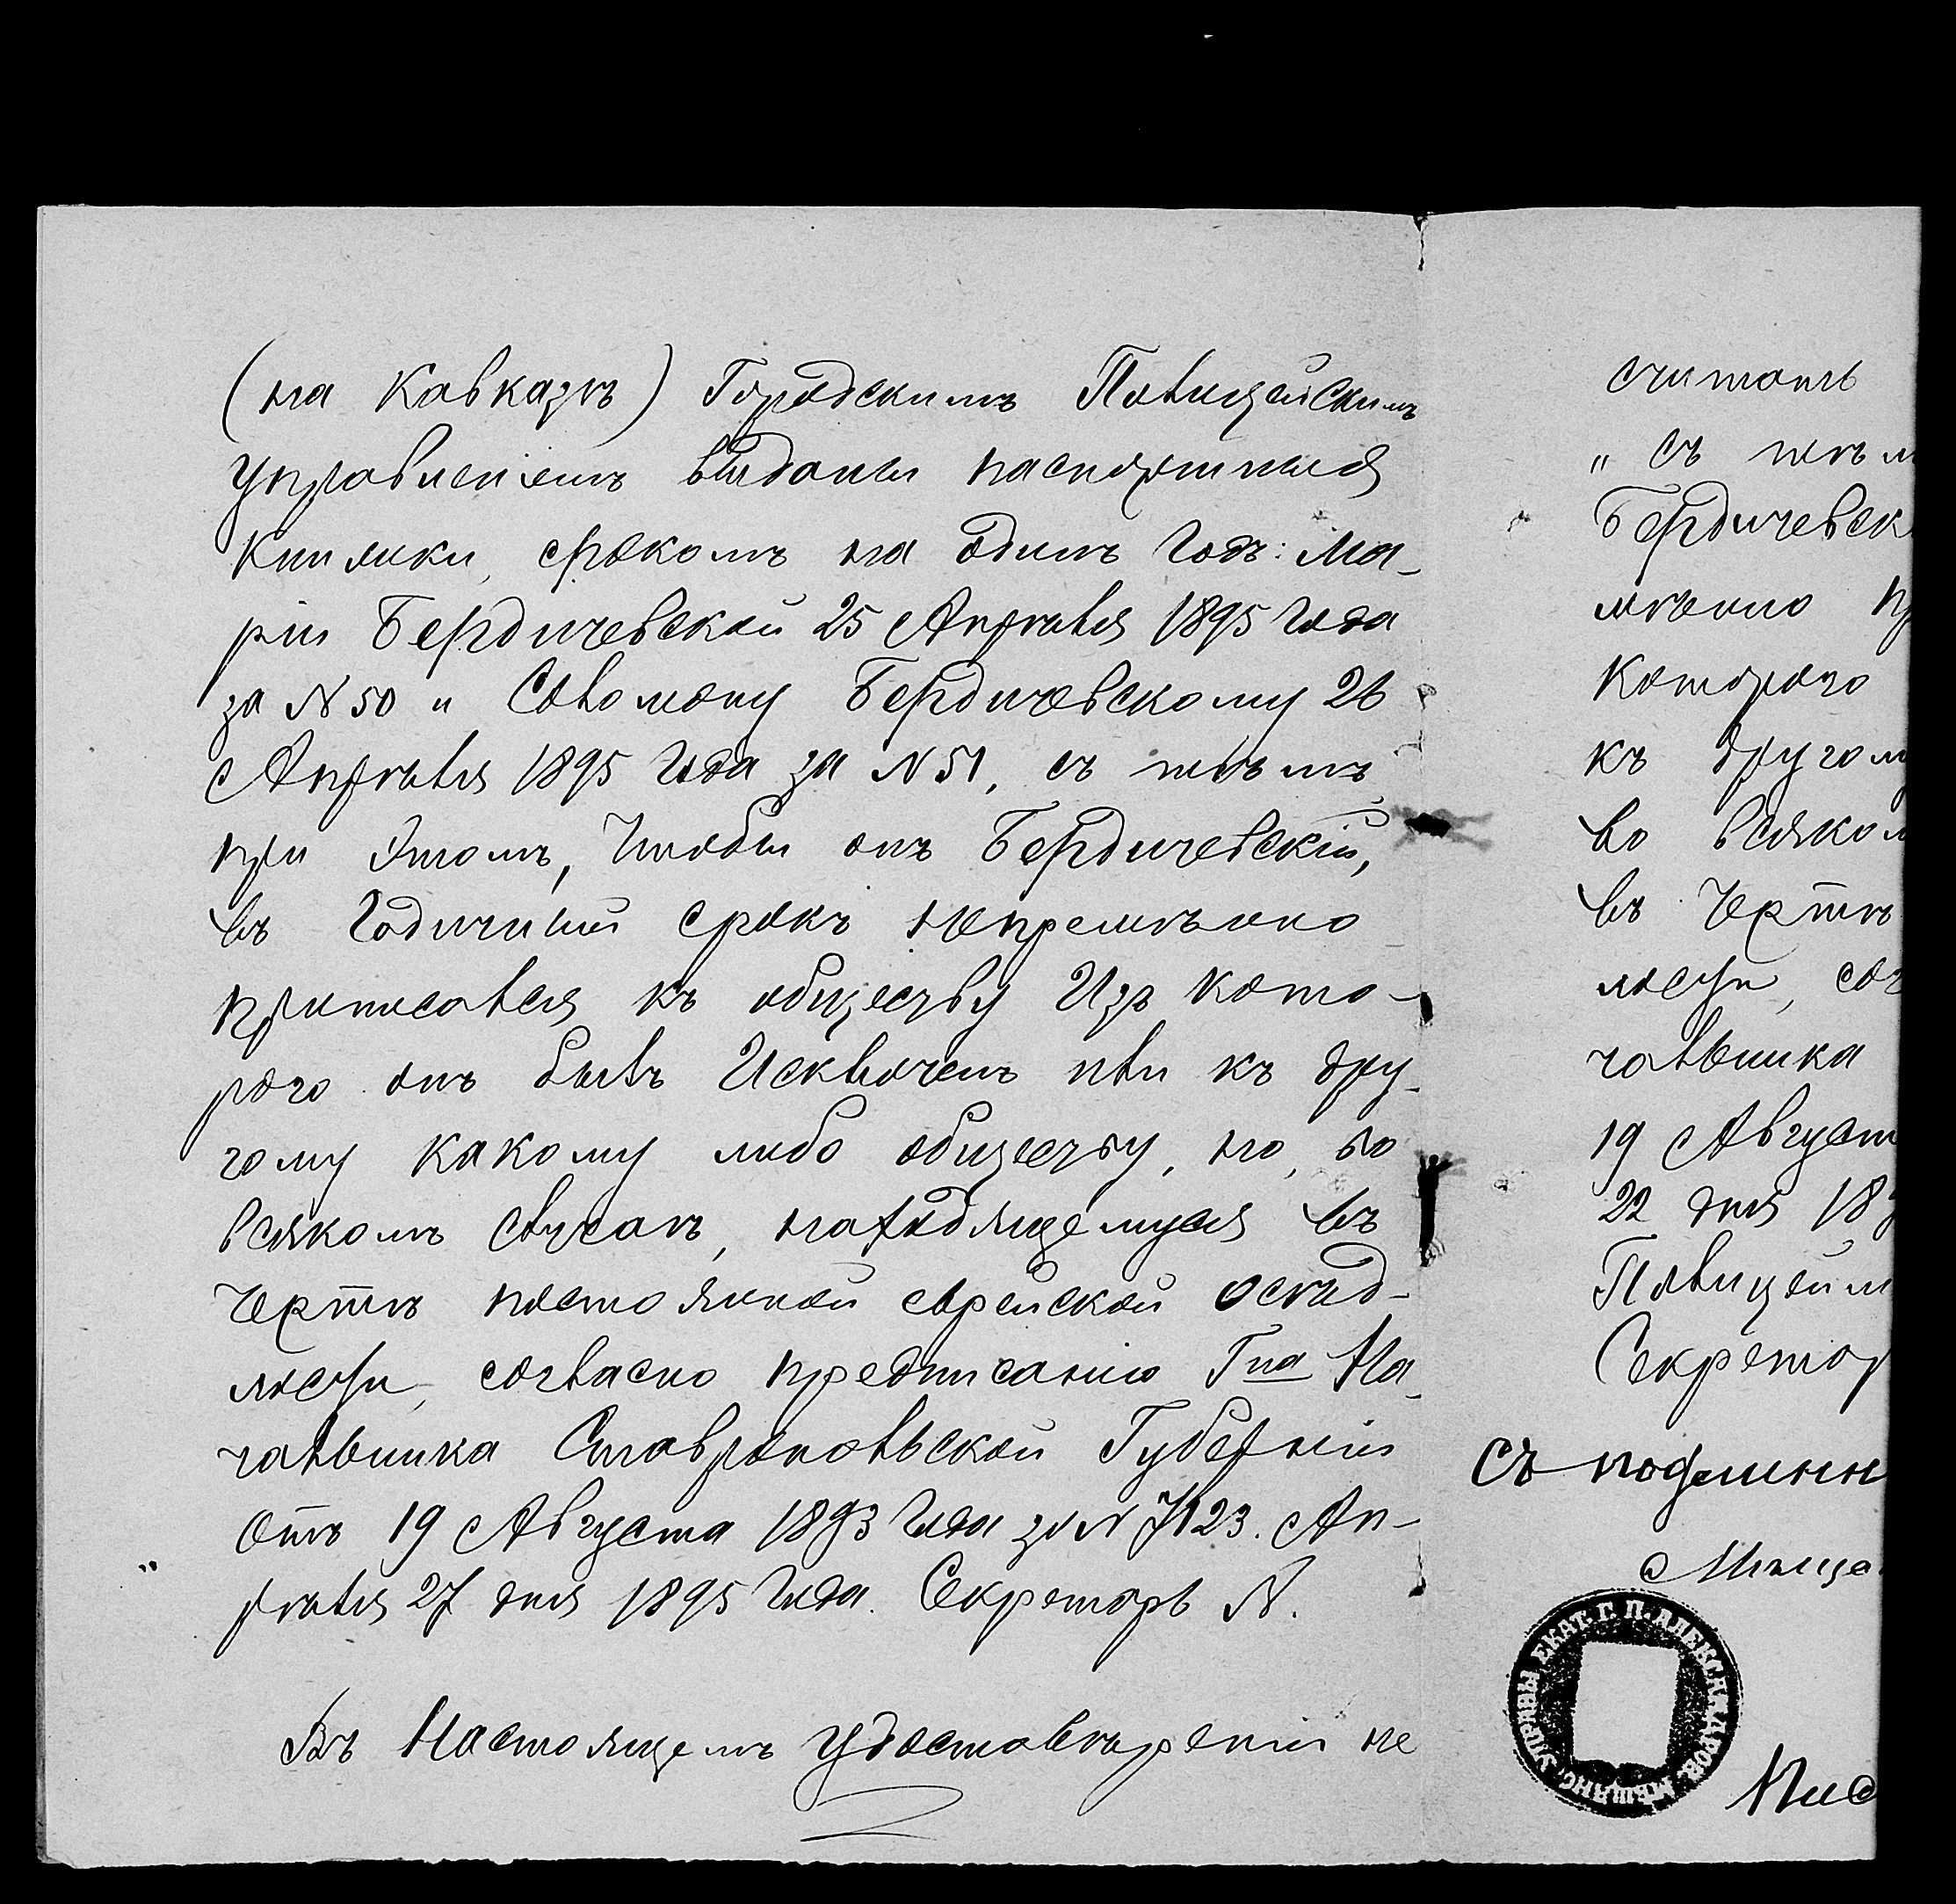 (на Кавказѣ) Городскимъ Полицейскимъ
управленіемъ выданы паспортныя
книжки, срокомъ на одинъ годъ: Ма-
ріи Бердичевской 25 Апрѣля 1895 года
за N 50 и Соломону Бердичевскому 26
Апрѣля 1895 года за N 51, съ тѣмъ
при этомъ, чтобы онъ Бердичевскій,
въ годичный срокъ непремѣнно
приписался къ обществу изъ кото-
рого онъ былъ исключенъ или къ дру-
гому какому либо обществу, но, во
всякомъ случаѣ, находящемуся въ
чертѣ постоянной еврейской осѣд-
лости, согласно предписанію Гна На-
чальника Ставропольской Губерніи
отъ 19 Августа 1893 года за N 7123. Ап-
рѣля 27 дня 1895 года. Секретарь N.
Въ настоящемъ удостовѣреніи не
считать
„ съ тѣм
Бердичевск
мѣнно пр
которого
къ другом
во всяком
въ чертѣ
лости, сог
чальника
19 Август
22 дня 18
Полицейм
Секретар
Съ подлинн
Мѣща
МѢЩАНС. УПРАВЫ ЕКАТ. Г. П. АЛЕКСАНДРОВ.
Пис